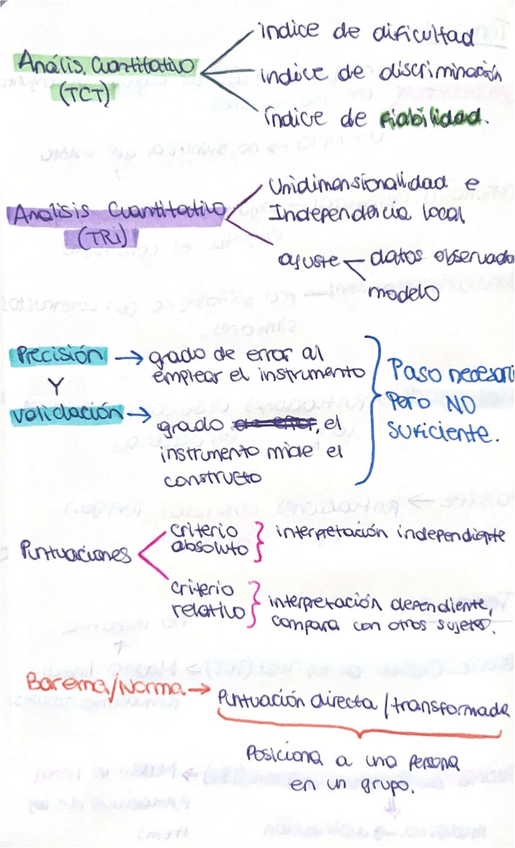 Análisis Cuantitativo
(TCT)
índice de dificultad
índice de discriminación
índice de fiabilidad.
Analisis Cuantitativo
(TRI)
Unidimensionalidad e
Independencia local
ajuste
datos observado
modelo
Precisión → grado de error al
emplear el instrumento
Y
validación → grado, el
instrumento mide el
constructo
Paso necesari
Pero NO
suficiente.
Puntuaciones
criterio
absoluto
interpretación independiente
criterio
relativo
interpretación dependiente,
compara con otros sujetos.
Barema/Norma → Puntuación directa/transformada
Posiciona a una persona
en un grupo.